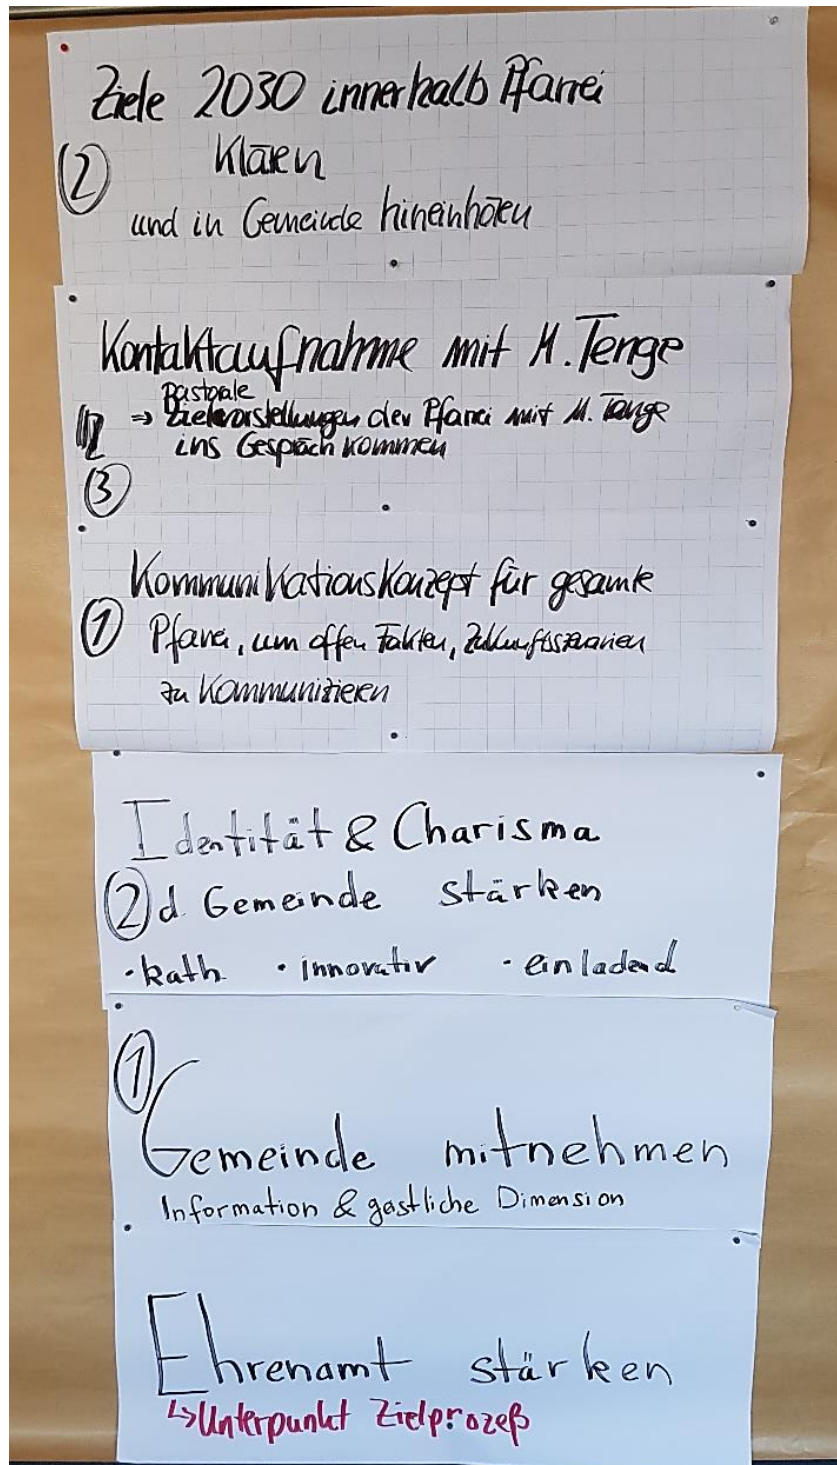 Ziele 2030 innerhalb Pfarrei
② Klären
und in Gemeinde hineinhören
Kontaktaufnahme mit M. Tenge
Pastorale
⇒ Zielvorstellungen der Pfarrei mit M. Tenge
ins Gespräch kommen
③
Kommunikationskonzept für gesamte
① Pfarrei, um offen Fakten, Zukunftsszenarien
zu Kommunizieren
Identität & Charisma
② d. Gemeinde stärken
· kath. · innovativ · einladend
①
Gemeinde mitnehmen
Information & gastliche Dimension
Ehrenamt stärken
↳ Unterpunkt Zielprozeß